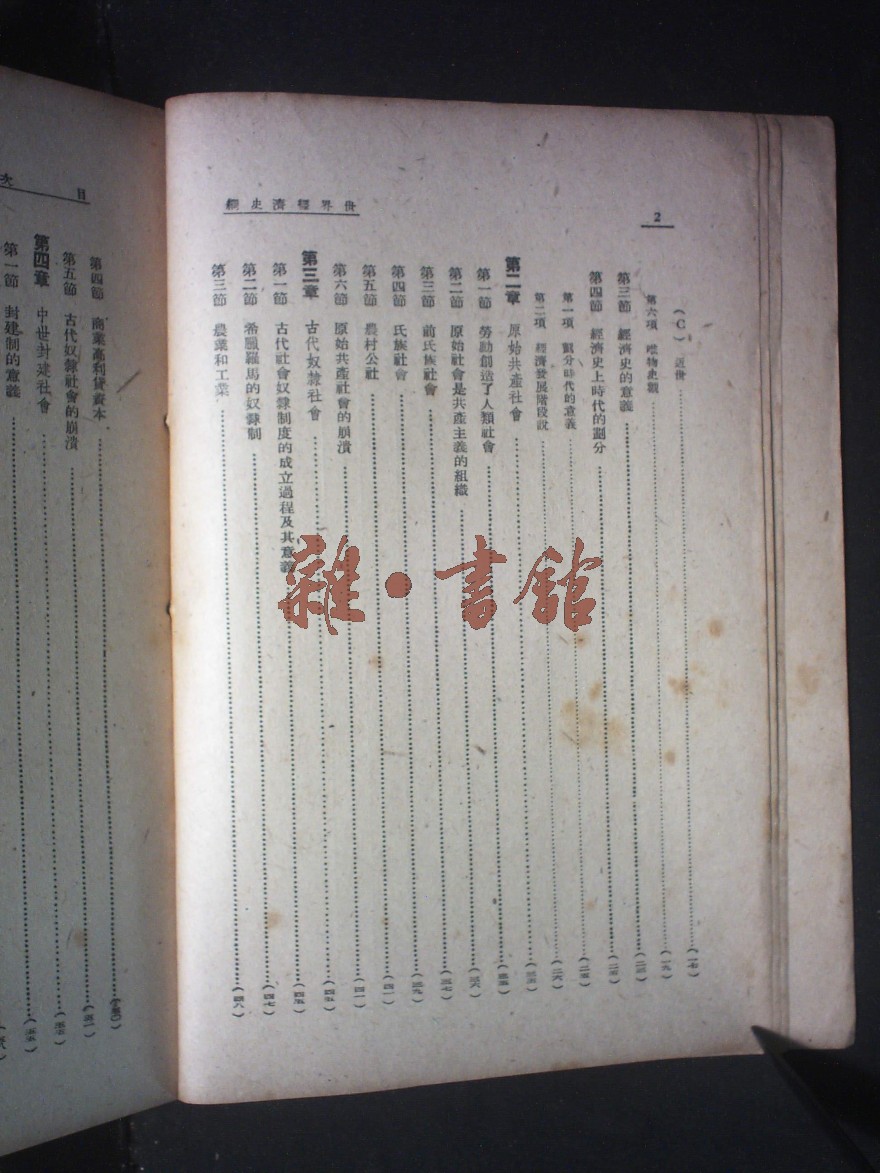 2
世界經濟史綱
(C) 近世…………(一七)
第六項 唯物史觀…………(一九)
第三節 經濟史的意義…………(二三)
第四節 經濟史上時代的劃分…………(二五)
第一項 劃分時代的意義…………(二五)
第二項 經濟發展階段說…………(二六)
第二章 原始共產社會…………(三五)
第一節 勞動創造了人類社會…………(三五)
第二節 原始社會是共產主義的組織…………(三六)
第三節 前氏族社會…………(三七)
第四節 氏族社會…………(三九)
第五節 農村公社…………(四一)
第六節 原始共產社會的崩潰…………(四二)
第三章 古代奴隸社會…………(四五)
第一節 古代社會奴隸制度的成立過程及其意義…………(四五)
第二節 希臘羅馬的奴隸制…………(四七)
第三節 農業和工業…………(四八)
目 次
第四節 商業高利貸資本…………(五〇)
第五節 古代奴隸社會的崩潰…………(五一)
第四章 中世封建社會…………(五五)
第一節 封建制的意義…………(五五)
雜·書館